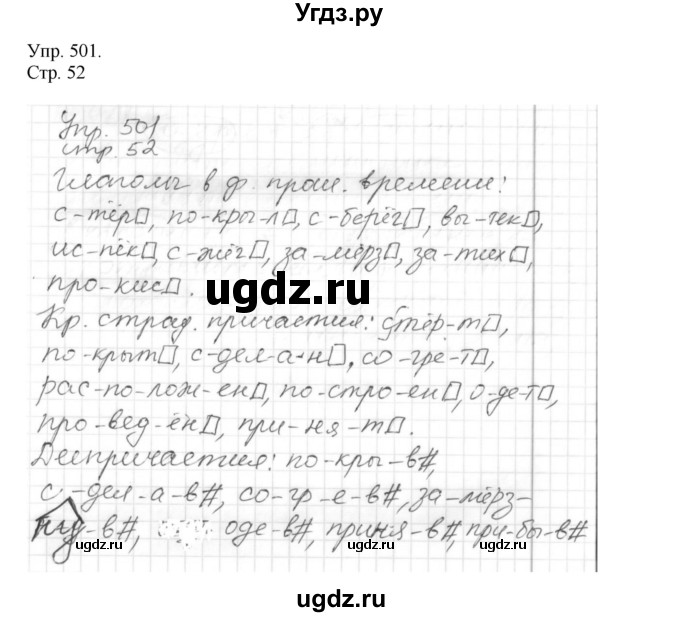 Угдз.ру
Упр. 501.
Стр. 52
Упр. 501
стр. 52
Глаголы в ф. прош. времени:
с-тёр□, по-кры-л□, с-берёг□, вы-тек□,
ис-пёк□, с-жёг□, за-мёрз□, за-тих□,
про-кис□.
ugdz.ru
Кр. страд. причастия: стёр-т□,
по-крыт□, с-дел-а-н□, со-гре-т□,
рас-по-лож-ен□, по-стро-ен□, о-де-т□,
про-вед-ён□, при-ня-т□.
Деепричастия: по-кры-в#,
с-дел-а-в#, со-гр-е-в#, за-мёрз-
ну-в#, оде-в#, приня-в#, при-бы-в#
ugdz.ru ugdz.ru ugdz.ru
ugdz.ru